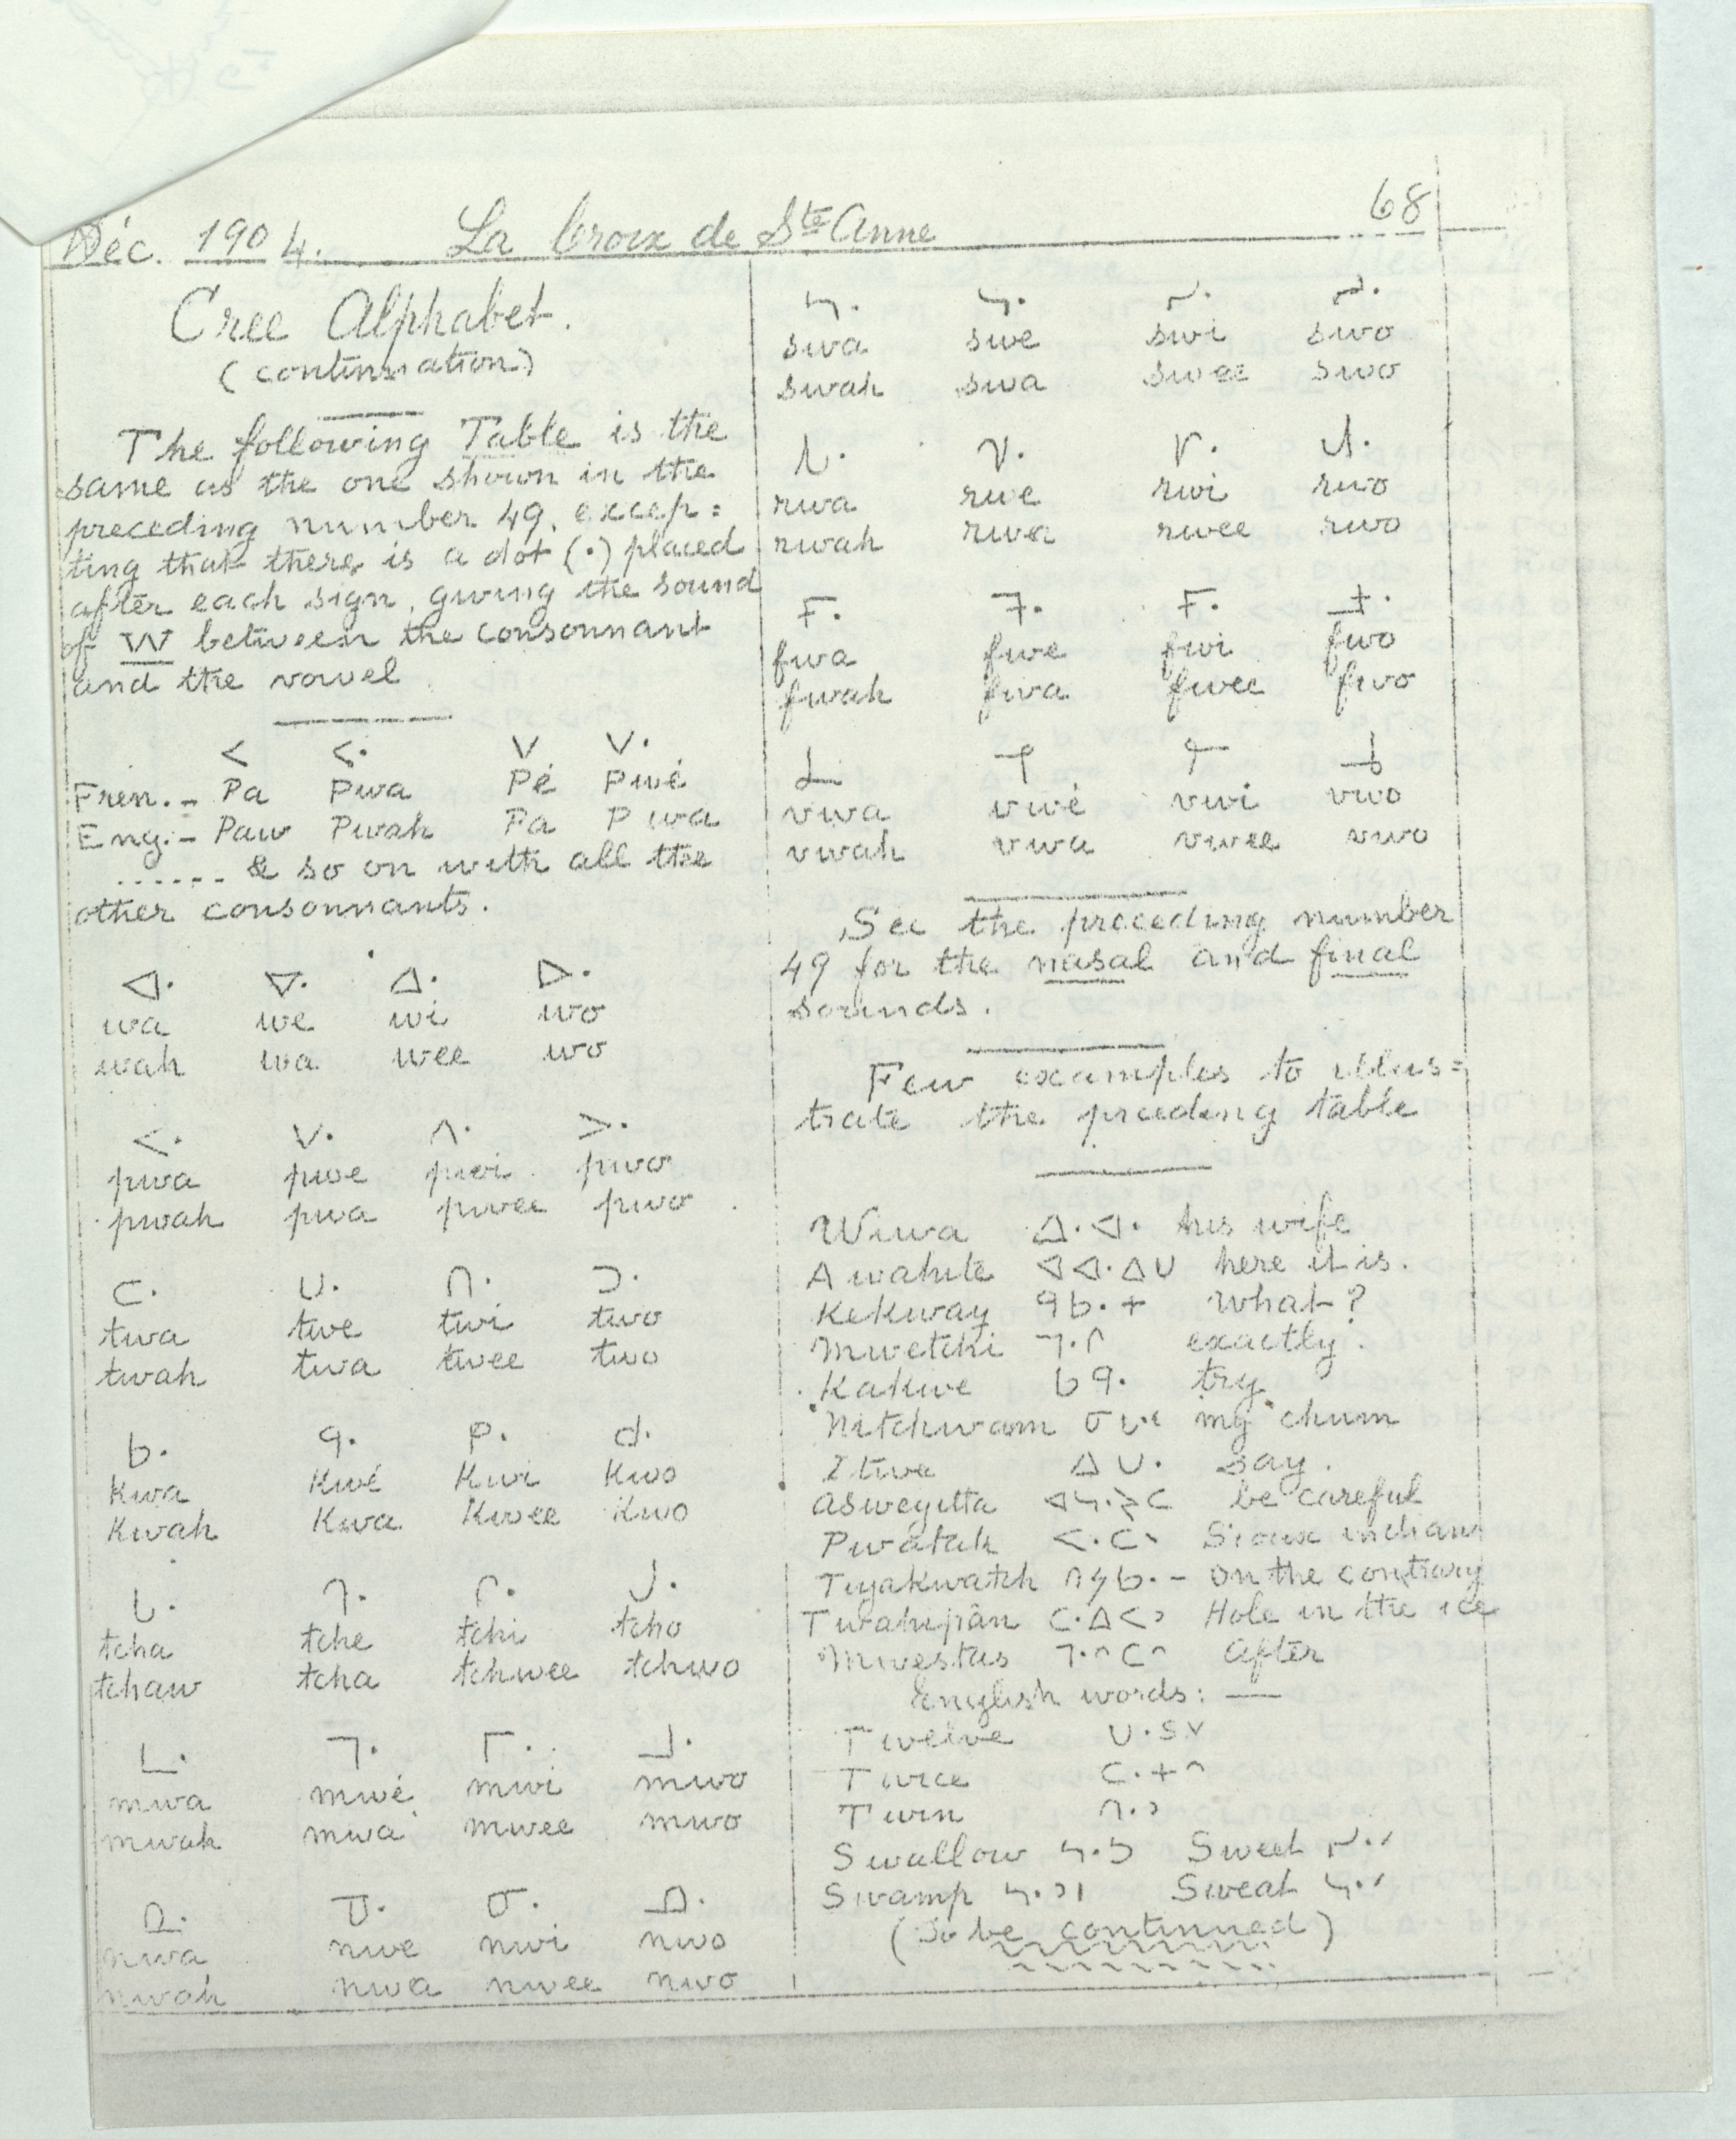 Déc. 1904. La Croix de Ste Anne 68
Cree Alphabet.
(continuation)
The following Table is the
same as the one shown in the
preceding number 49, excep=
ting that there is a dot (·) placed
after each sign, giving the sound
of W between the consonnant
and the vowel
ᐸ ᐸ· ᐯ ᐯ·
Fren. - Pa Pwa Pé Pwé
Eng: - Paw Pwah Pa Pwa
...... & so on with all the
other consonnants.
ᐊ· ᐁ· ᐃ· ᐅ·
wa we wi wo
wah wa wee wo
ᐸ· ᐯ· ᐱ· ᐳ·
pwa pwe pwi pwo
pwah pwa pwee pwo
ᑕ· ᑌ· ᑎ· ᑐ·
twa twe twi two
twah twa twee two
ᑲ· ᑫ· ᑭ· ᑯ·
Kwa Kwé Kwi Kwo
Kwah Kwa Kwee Kwo
ᒐ· ᒉ· ᒋ· ᒍ·
tcha tche tchi tcho
tchaw tcha tchwee tchwo
ᒪ· ᒣ· ᒥ· ᒧ·
mwa mwé mwi mwo
mwah mwa mwee mwo
ᓇ· ᓀ· ᓂ· ᓄ·
nwa nwe nwi nwo
nwah nwa nwee nwo
ᓴ· ᓭ· ᓯ· ᓱ·
swa swe swi swo
swah swa swee swo
rwa rwe rwi rwo
rwah rwa rwee rwo
fwa fwe fwi fwo
fwah fwa fwee fwo
vwa vwé vwi vwo
vwah vwa vwee vwo
See the preceding number
49 for the nasal and final
sounds.
Few examples to illus=
trate the preceding table
Wiwa ᐃ·ᐊ· his wife
Awahite ᐊᐊ·ᐃᑌ here it is.
Kekway ᑫᑲ·+ What?
Mwetchi ᒣ·ᒋ exactly.
Kakwe ᑲᑫ· try
Nitchwam my chum
Itwe ᐃᑌ· say.
Asweyitta be careful
Pwatak ᐸ·ᑕᐠ Sioux indian
Tiyakwatch ᑎᔭᑲ·- on the contrary
Twahipân ᑕ·ᐃᐸᐣ Hole in the ice
Mwestas ᒣ·ᐢᑕᐢ After
English words: —
Twelve
Twice ᑕ·+ᐢ
Twin ᑎ·ᐣ
Swallow Sweet ᓯ·ᐟ
Swamp Sweat ᓭ·ᐟ
(To be continued)